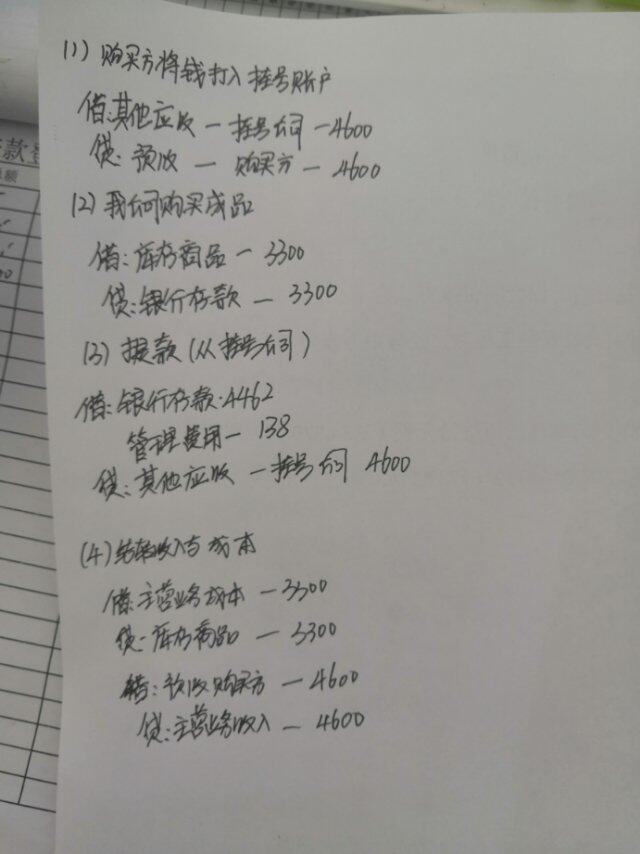 (1) 购买方将钱打入挂号账户
借:其他应收 — 挂号公司 — 4600
贷: 预收 — 购买方 — 4600
(2) 我公司购买成品
借: 库存商品 — 3300
贷: 银行存款 — 3300
(3) 提款 (从挂号公司)
借: 银行存款: 4462
管理费用 — 138
贷: 其他应收 — 挂号公司 4600
(4) 结转收入与成本
借: 主营业务成本 — 3300
贷: 库存商品 — 3300
借: 预收购买方 — 4600
贷: 主营业务收入 — 4600
款
额